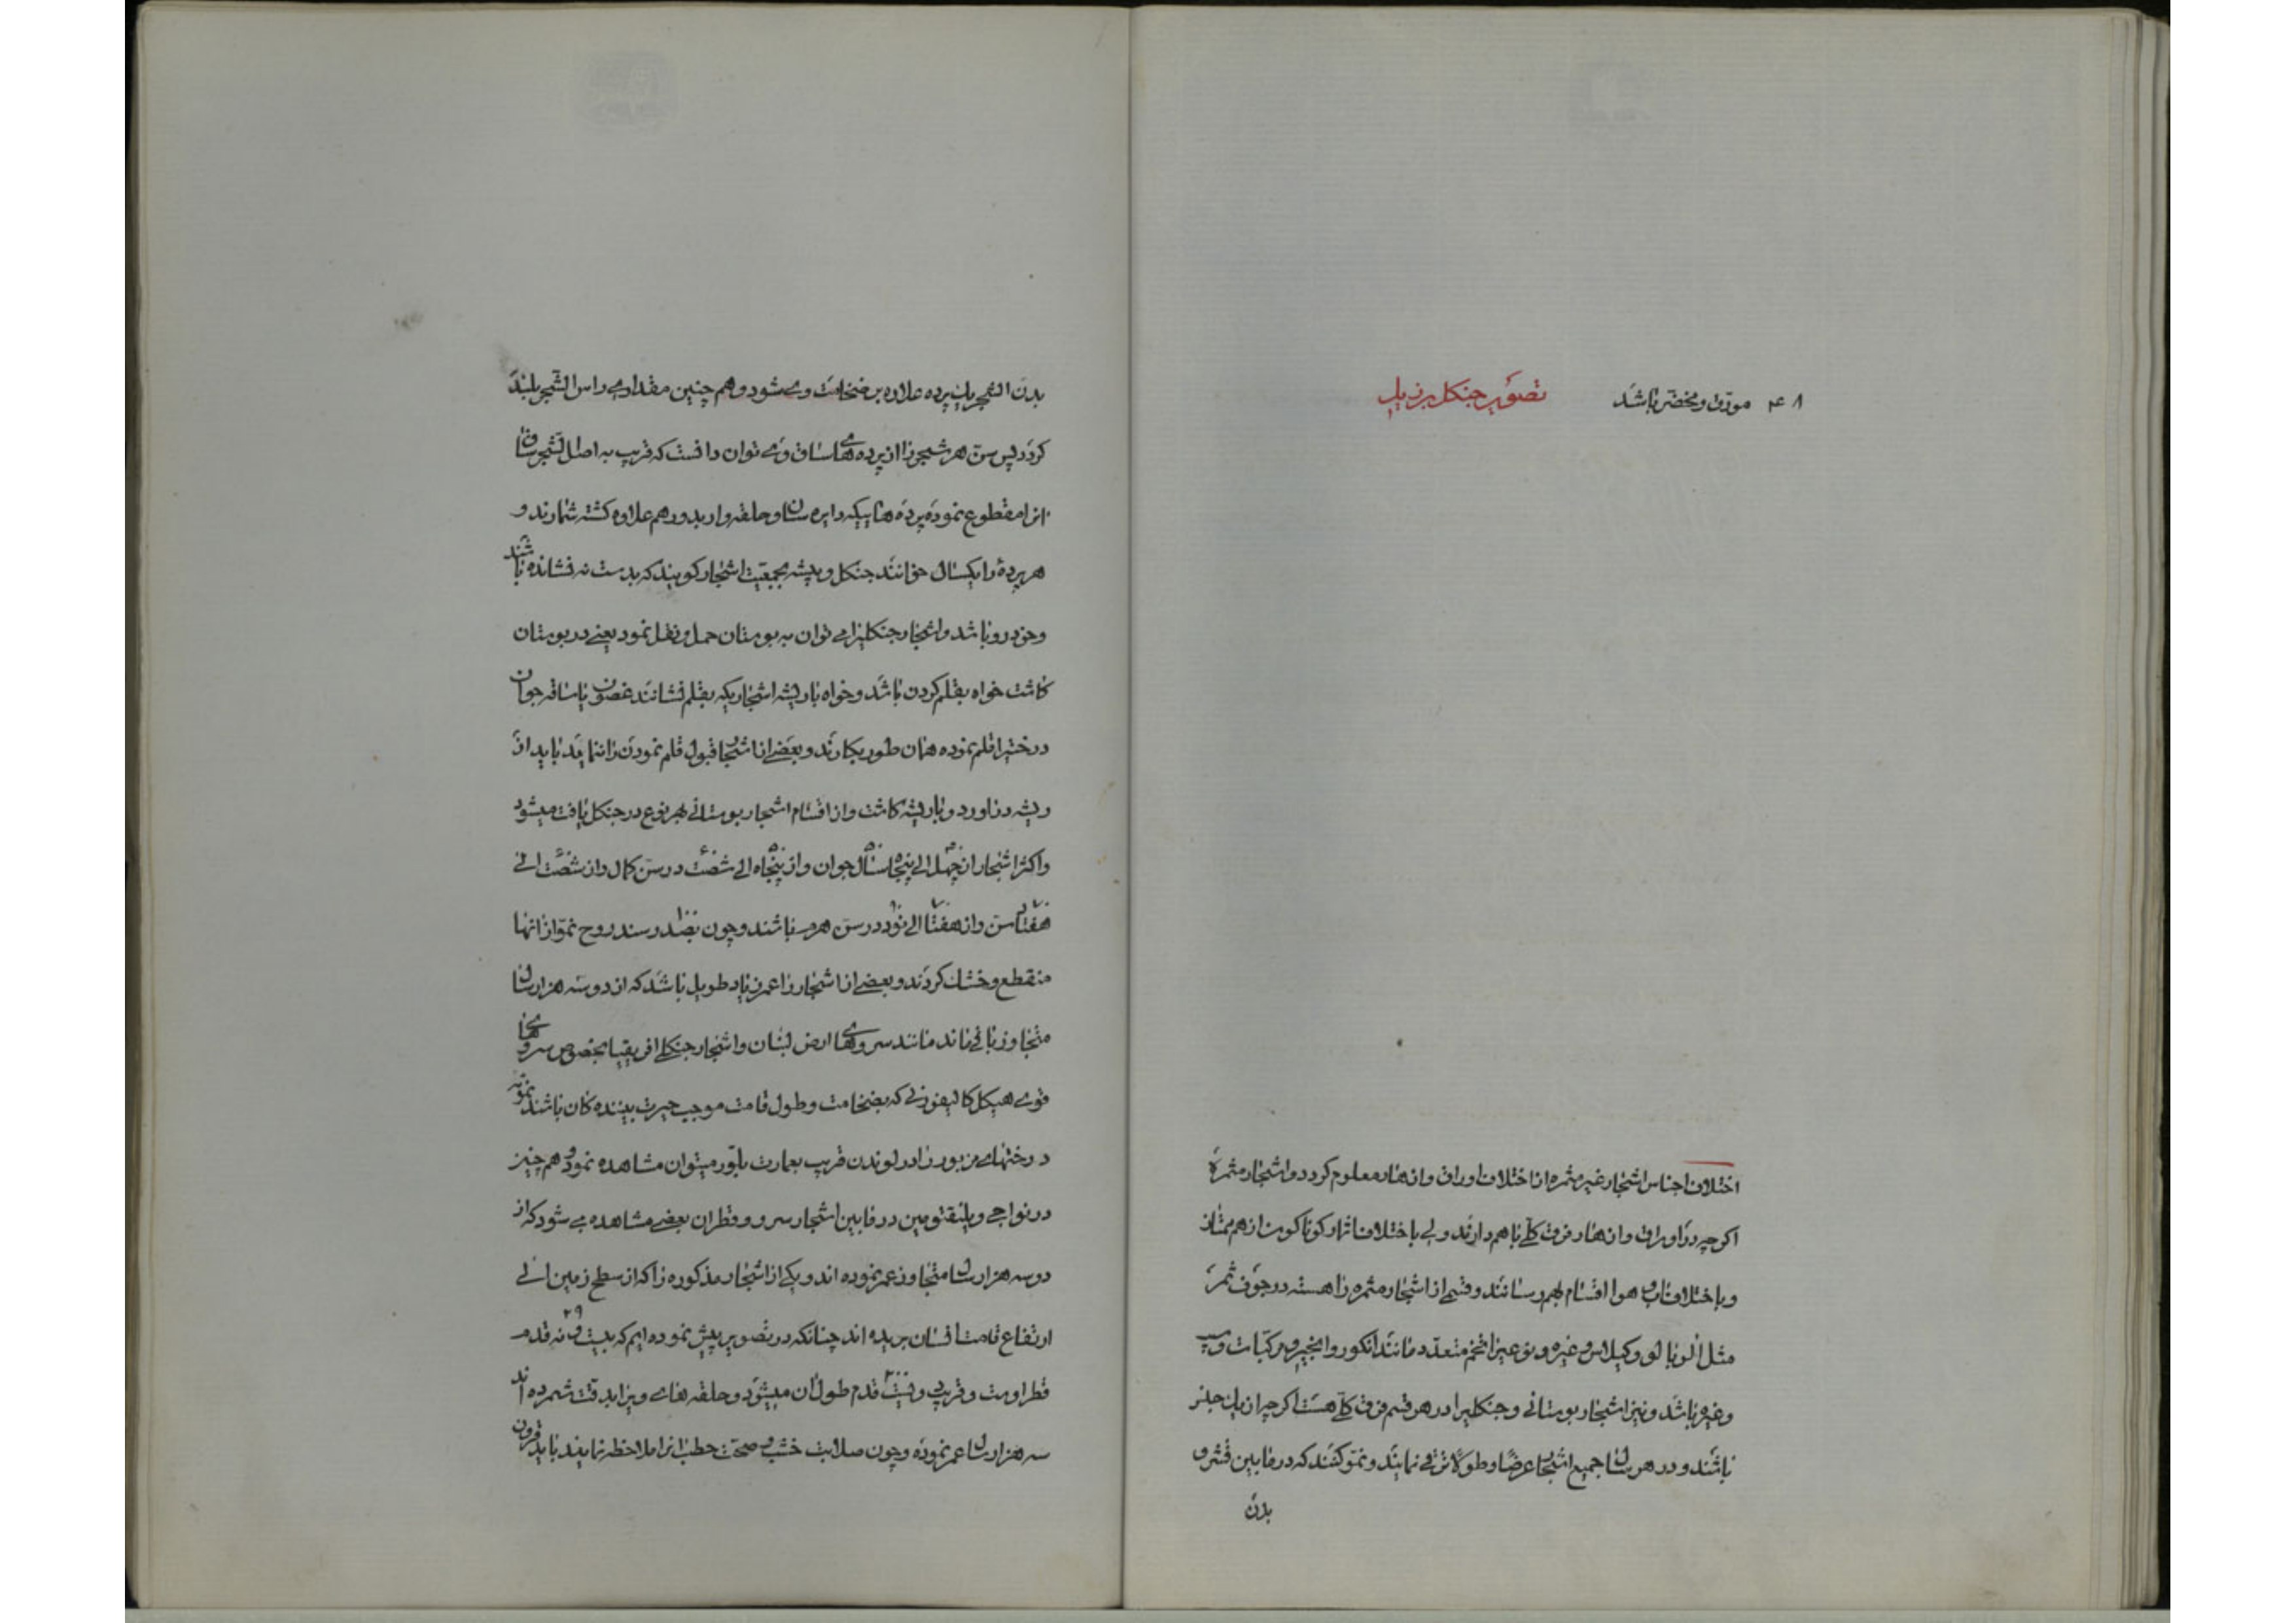 ۴۸ مورّق و مخضّر باشد
تصویر جنکل برزیل
اختلاف اجناس اشجار غیر مثمره از اختلاف اوراق و ازهار معلوم کردد و اشجار مثمره
اکرچه در اوراق و ازهار فرق کلّی باهم دارند ولی باختلاف اثمار کوناکون از هم ممتاز
و باختلاف آب و هوا اقسام بهم رسانند و قسمی از اشجار مثمره را هسته در جوف ثمر
مثل آلوبالو و کیلاس و غیره و نوعیرا تخم متعدّد مانند انکور و انجیر و مرکّبات و سیب
و غیره باشد و نیز اشجار بوستانی و جنکلیرا در هر قسم فرق کلّی هست اکرچه از یك جنس
باشند و در هر سال جمیع اشجار عرضًا و طولًا ترقی نمایند و نموّ کنند که در مابین قشر و
بدن
بدن الشجر یك پرده علاوه بر ضخامت وی شود و هم چنین مقداری راس الشجر بلند
کردد پس سنّ هر شجر را از پرده های ساق وی توان دانست که قریب به اصل الشجر ساق
انرا مقطوع نموده پرده هاییکه دایره سان و حلقه وار بدور هم علاوه کشته شمارند و
هر پردهٔ را یکسال خوانند جنکل و بیشه بجمعیّت اشجار کویند که بدست نه فشانده باشند
و خودرو باشد و اشجار جنکلیرا می توان به بوستان حمل و نقل نمود یعنی در بوستان
کاشت خواه بقلم کردن باشد و خواه با ریشه اشجاریکه بقلم فشانند غصون یا ساقه جوان
درختیرا قلم نموده همان طور بکارند و بعضی از اشجار قبول قلم نمودن را ننمایند باید از
ریشه دراورد و با ریشه کاشت و از اقسام اشجار بوستانی بهر نوع در جنکل یافت میشود
و اکثر اشجار از چهل الی پنجاه سال جوان و از پنجاه الی شصت در سنّ کمال و از شصّت الی
هفتاد سن و از هفتاد الی نود در سنّ هرم باشند و چون بصد رسند روح نموّ از انها
منقطع و خشك کردند و بعضی از اشجار را عمر زیاد طویل باشد که از دو سه هزار سال
متجاوز باقی ماند مانند سروهای ارض لبنان و اشجار جنکلی افریقیا بخصوص سروهای
قوی هیکل کالیفورنی که بضخامت و طول قامت موجب حیرت بیننده کان باشند نمونه
درختهای مزبور را در لوندن قریب بعمارت بلّور میتوان مشاهده نمود و هم چنین
در نواحی ویلنقتومین در مابین اشجار سرو و قطران بعضی مشاهده می شود که از
دو سه هزار سال متجاوز عمر نموده اند و یکی از اشجار مذکوره را که از سطح زمین الی
ارتفاع قامت انسان بریده اند چنانکه در تصویر پیش نموده ایم که بیست و نه ۲۹ قدم
قطر اوست و قریب دویست ۲۰۰ قدم طول آن میشود و حلقه های ویرا بدقّت شمرده اند
سه هزار سال عمر نموده و چون صلابت خشب و صحّت حطب انرا ملاحظه نمایند باید قرون